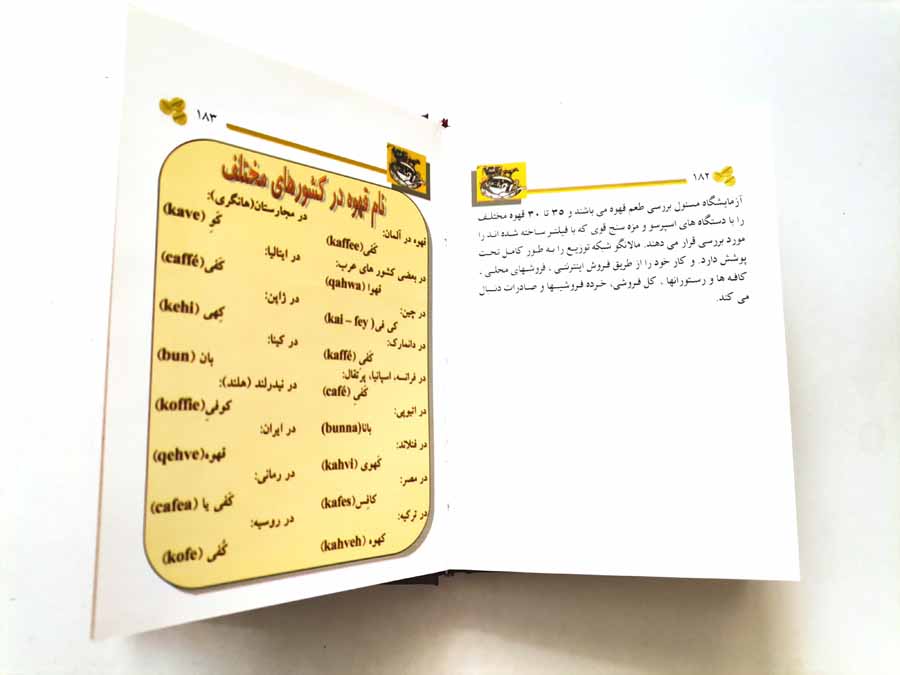 ۱۸۲
آزمایشگاه مسئول بررسی طعم قهوه می باشند و ۳۵ تا ۳۰ قهوه مختلف
را با دستگاه های اسپرسو و مزه سنج قوی که با فیلتر ساخته شده اند را
مورد بررسی قرار می دهند. مالانگو شبکه توزیع را به طور کامل تحت
پوشش دارد. و کار خود را از طریق فروش اینترنتی ، فروشهای محلی ،
کافه ها و رستورانها ، کل فروشی، خرده فروشیها و صادرات دنبال
می کند.
۱۸۳
نام قهوه در کشورهای مختلف
قهوه در آلمان:
کَفی (kaffee)
در بعضی کشور های عرب:
قهوا (qahwa)
در چین:
کی فی( kai – fey)
در دانمارک:
کَفی (kaffé)
در فرانسه، اسپانیا، پرتقال:
کَفیِ (café)
در اتیوپی:
بانا(bunna)
در فنلاند:
کَهوی (kahvi)
در مصر:
کافِس(kafes)
در ترکیه:
کهوه (kahveh)
در مجارستان(هانگری):
کَو (kave)
در ایتالیا:
کَفی (caffé)
در ژاپن:
کِهی (kehi)
در کینا:
بان (bun)
در نیدرلند (هلند):
کوفیِ(koffie)
در ایران:
قهوه(qehve)
در رمانی:
کَفی یا (cafea)
در روسیه:
کُفی (kofe)